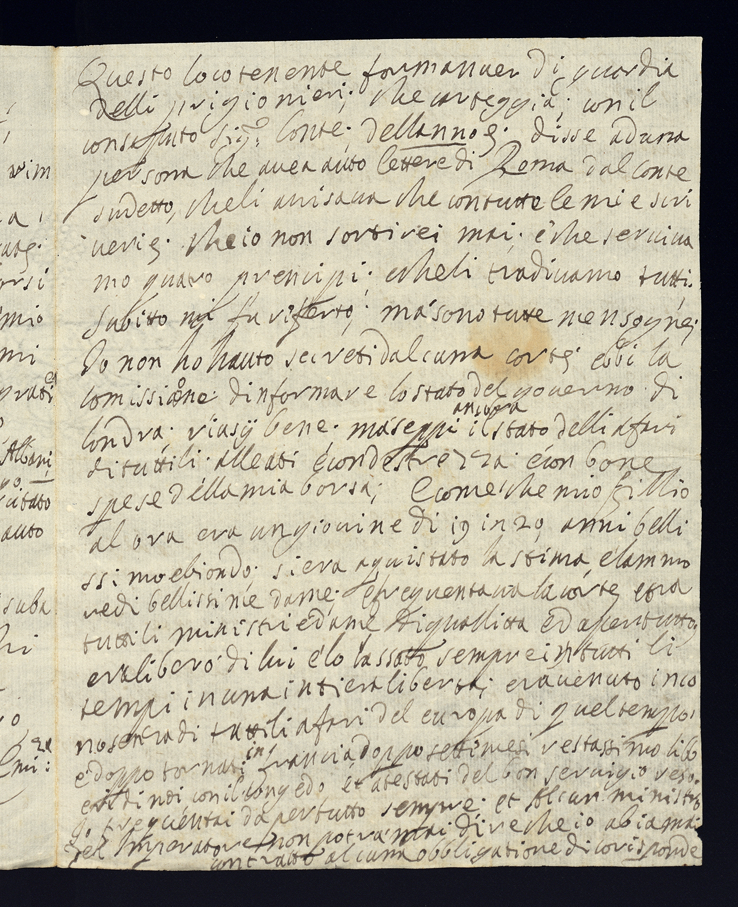 Questo locotenente for manuer di guardia
delli prigionieri, che carteggia; con il
consaputo Sig.º Conte; dellannoj. disse aduna
persona che avea auto lettere di Roma dal conte
sudetto, cheli avisava che contutte le mie scri
verie; cheio non sortirei mai; e che serviva
mo quatro principi; echeli tradivamo tutti.
Subitto mi fu riferto; má sono tutte mensogne;
Io non hó hauto secreti dalcuna corte; ebbi la
Comissione dinformare lo stato del governo di
londra; riusij bene; má seppi ancora il stato delli afari
dituttili alleati é con destrezza e con bone
spese della mia borsa; E come che mio fillio
al ora era un giovine di 19 in 20 anni belli
ssimo ebiondo; siera aquistato la stima elammo
re di bellissime dame; é frequentava la corte, etra
tuttili ministri edame di quallitta ed apertutto
era libero di lui é lo lassato sempre in tutti li
tempi in una intiera liberta; era venuto in co
noscenza di tuttili afari del europa di quel tempo,
é doppo tornati in francia doppo setti mesi restassimo libe
con il congedo et atestati del bon servigio reso.
Io frequentai da pertutto sempre et Alcun ministro
del Imperatore non potrá mai dire che io abia mai
contratto alcuna obbligatione di corisponde
vim
a,
orsi
mio
mi
grati
Albani
citato
auto
suba